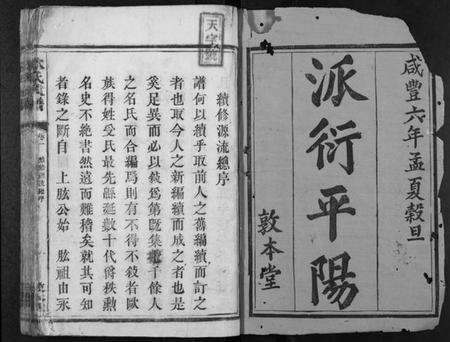 咸豐六年孟夏穀旦
派衍平陽
敦本堂
天字號
續修源流總序
譜何以續乎取前人之舊編續而訂之
者也取今人之新編續而成之者也是
奚足異而必以敘爲第既集千餘人
之名氏而合編焉則有不得不敘者歐
族得姓受氏最先緜延數十代爵秩勲
名史不絶書然遠而難稽矣就其可知
者錄之斷自 上肱公始 肱祖由永